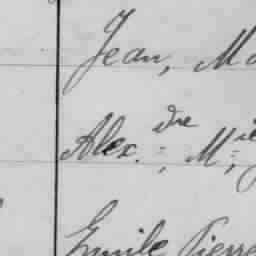 Jean, Ma
Alex.dre; M.ie;
Emile Pierre